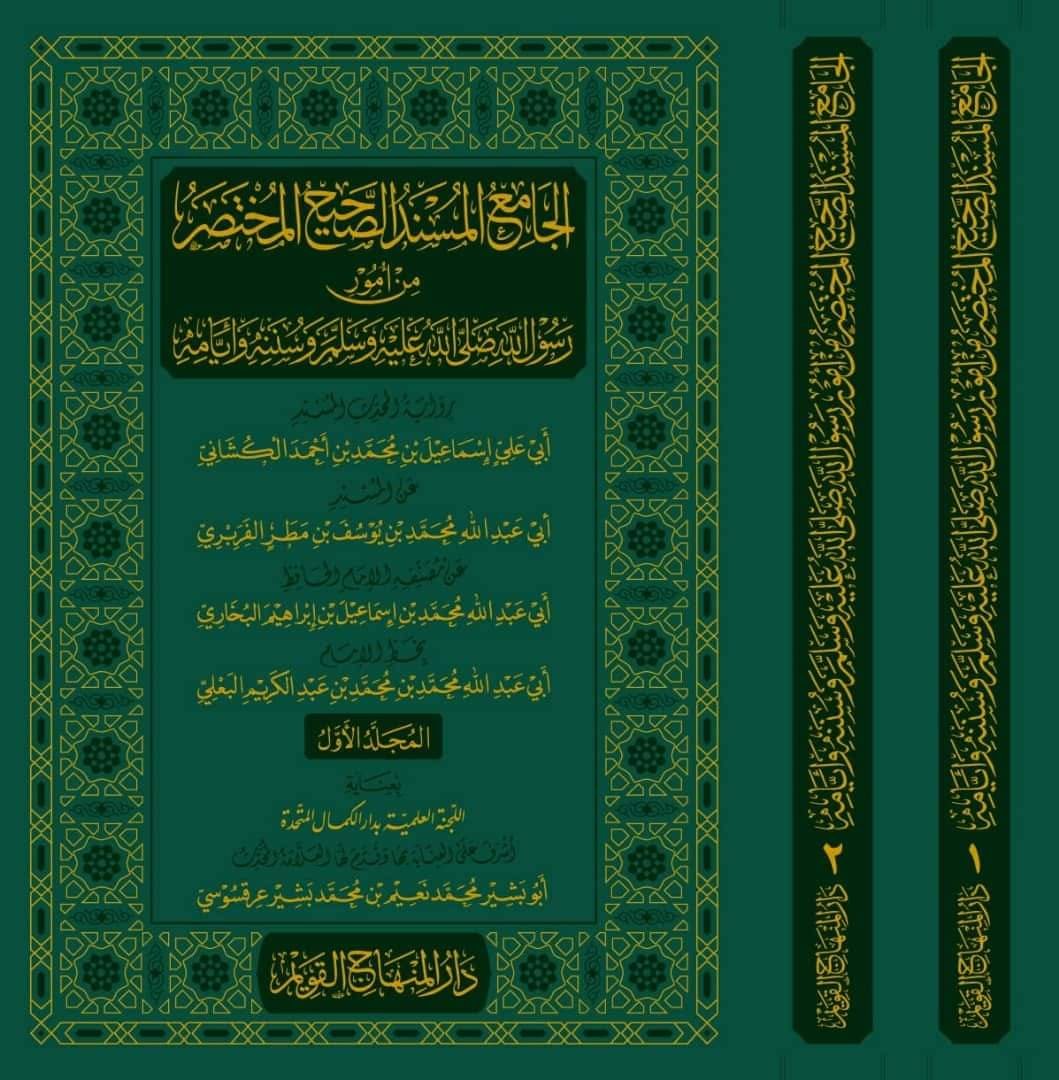 الجَامِعُ المُسْنَدُ الصَّحِيحُ المُخْتَصَرُ
مِنْ أُمُورِ
رَسُولِ اللهِ صَلَّى اللهُ عَلَيْهِ وَسَلَّمَ وَسُنَنِهِ وَأَيَّامِهِ
رواية المحدث المسند
أَبِي عَلِيٍّ إِسْمَاعِيلَ بْنِ مُحَمَّدِ بْنِ أَحْمَدَ الْكُشَانِيِّ
عن المسند
أَبِي عَبْدِ اللهِ مُحَمَّدِ بْنِ يُوسُفَ بْنِ مَطَرٍ الفَرَبْرِيِّ
عن مصنفه الإمام الحافظ
أَبِي عَبْدِ اللهِ مُحَمَّدِ بْنِ إِسمَاعِيلَ بْنِ إِبْرَاهِيمَ البُخَارِيِّ
بخط الإمام
أَبِي عَبْدِ اللهِ مُحَمَّدِ بْنِ مُحَمَّدِ بْنِ عَبْدِ الكَرِيمِ البَعْلِيِّ
المُجَلَّدُ الأَوَّلُ
بعناية
اللجنة العلميّة بدار الكمال المتّحدة
أشرف على العناية بها وقدم لها العلامة المحدث
أَبُو بَشِيرْ مُحَمَّد نَعِيم بْن مُحَمَّد بَشِيرْ عِرقسُوسِي
دَارُ المِنْهَاجِ القَوِيْمِ
الجامع المسند الصحيح المختصر من أمور رسول الله صلى الله عليه وسلم وسننه وأيامه ٢ دار المنهاج القويم
الجامع المسند الصحيح المختصر من أمور رسول الله صلى الله عليه وسلم وسننه وأيامه ١ دار المنهاج القويم